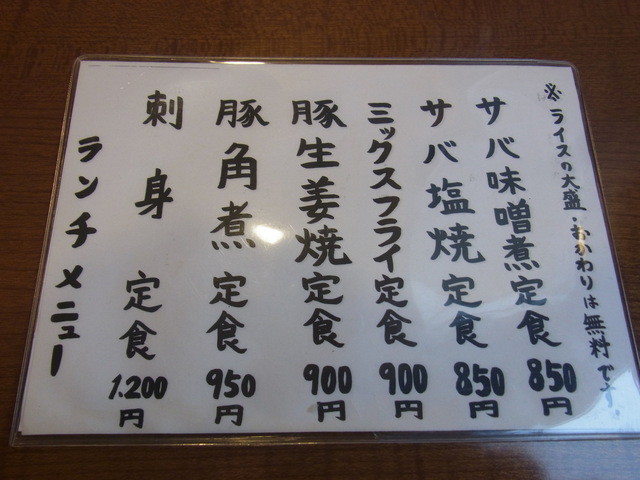 ※ライスの大盛・おかわりは無料です。
サバ味噌煮定食 850円
サバ塩焼定食 850円
ミックスフライ定食 900円
豚生姜焼定食 900円
豚角煮定食 950円
刺身定食 1.200円
ランチメニュー